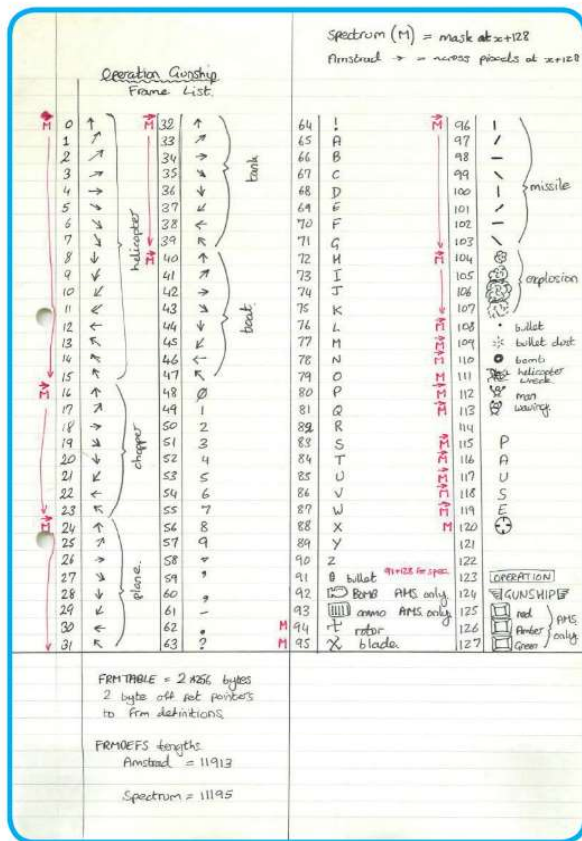 Spectrum (M) = mask at x+128
Amstrad → = across pixels at x+128
Operation Gunship
Frame List.
M 0 ↑
1 ↗
2 ↗
3 ↗
4 →
5 ↘
6 ↘
7 ↘
8 ↓
9 ↙
10 ↙
11 ↙
12 ←
13 ↖
14 ↖
15 ↖
helicopter
M 16 ↑
17 ↗
18 →
19 ↘
20 ↓
21 ↙
22 ←
23 ↖
chopper
M 24 ↑
25 ↗
26 →
27 ↘
28 ↓
29 ↙
30 ←
31 ↖
plane.
M 32 ↑
33 ↗
34 →
35 ↘
36 ↓
37 ↙
38 ←
39 ↖
tank
M 40 ↑
41 ↗
42 →
43 ↘
44 ↓
45 ↙
46 ←
47 ↖
boat.
48 0
49 1
50 2
51 3
52 4
53 5
54 6
55 7
56 8
57 9
58
59
60
61 –
62 .
63 ?
64 !
65 A
66 B
67 C
68 D
69 E
70 F
71 G
72 H
73 I
74 J
75 K
76 L
77 M
78 N
79 O
80 P
81 Q
82 R
83 S
84 T
85 U
86 V
87 W
88 X
89 Y
90 Z
91 bullet 91+128 for spec.
92 BOMB AMS. only.
93 ammo AMS. only.
M 94 rotor
M 95 blade.
M 96
97
98
99
100
101
102
103
missile
M 104
105
106
107
explosion
M 108 bullet
M 109 bullet dust
M 110 bomb
M 111 helicopter wreck
M 112 man
M 113 waving.
114
M 115 P
M 116 A
M 117 U
M 118 S
M 119 E
M 120
121
122
123 OPERATION
124 GUNSHIP
125 red
126 Amber
127 Green
AMS. only
FRMTABLE = 2 x256 bytes
2 byte off set pointers
to frm definitions
FRMDEFS lengths
Amstrad = 11913
Spectrum = 11195